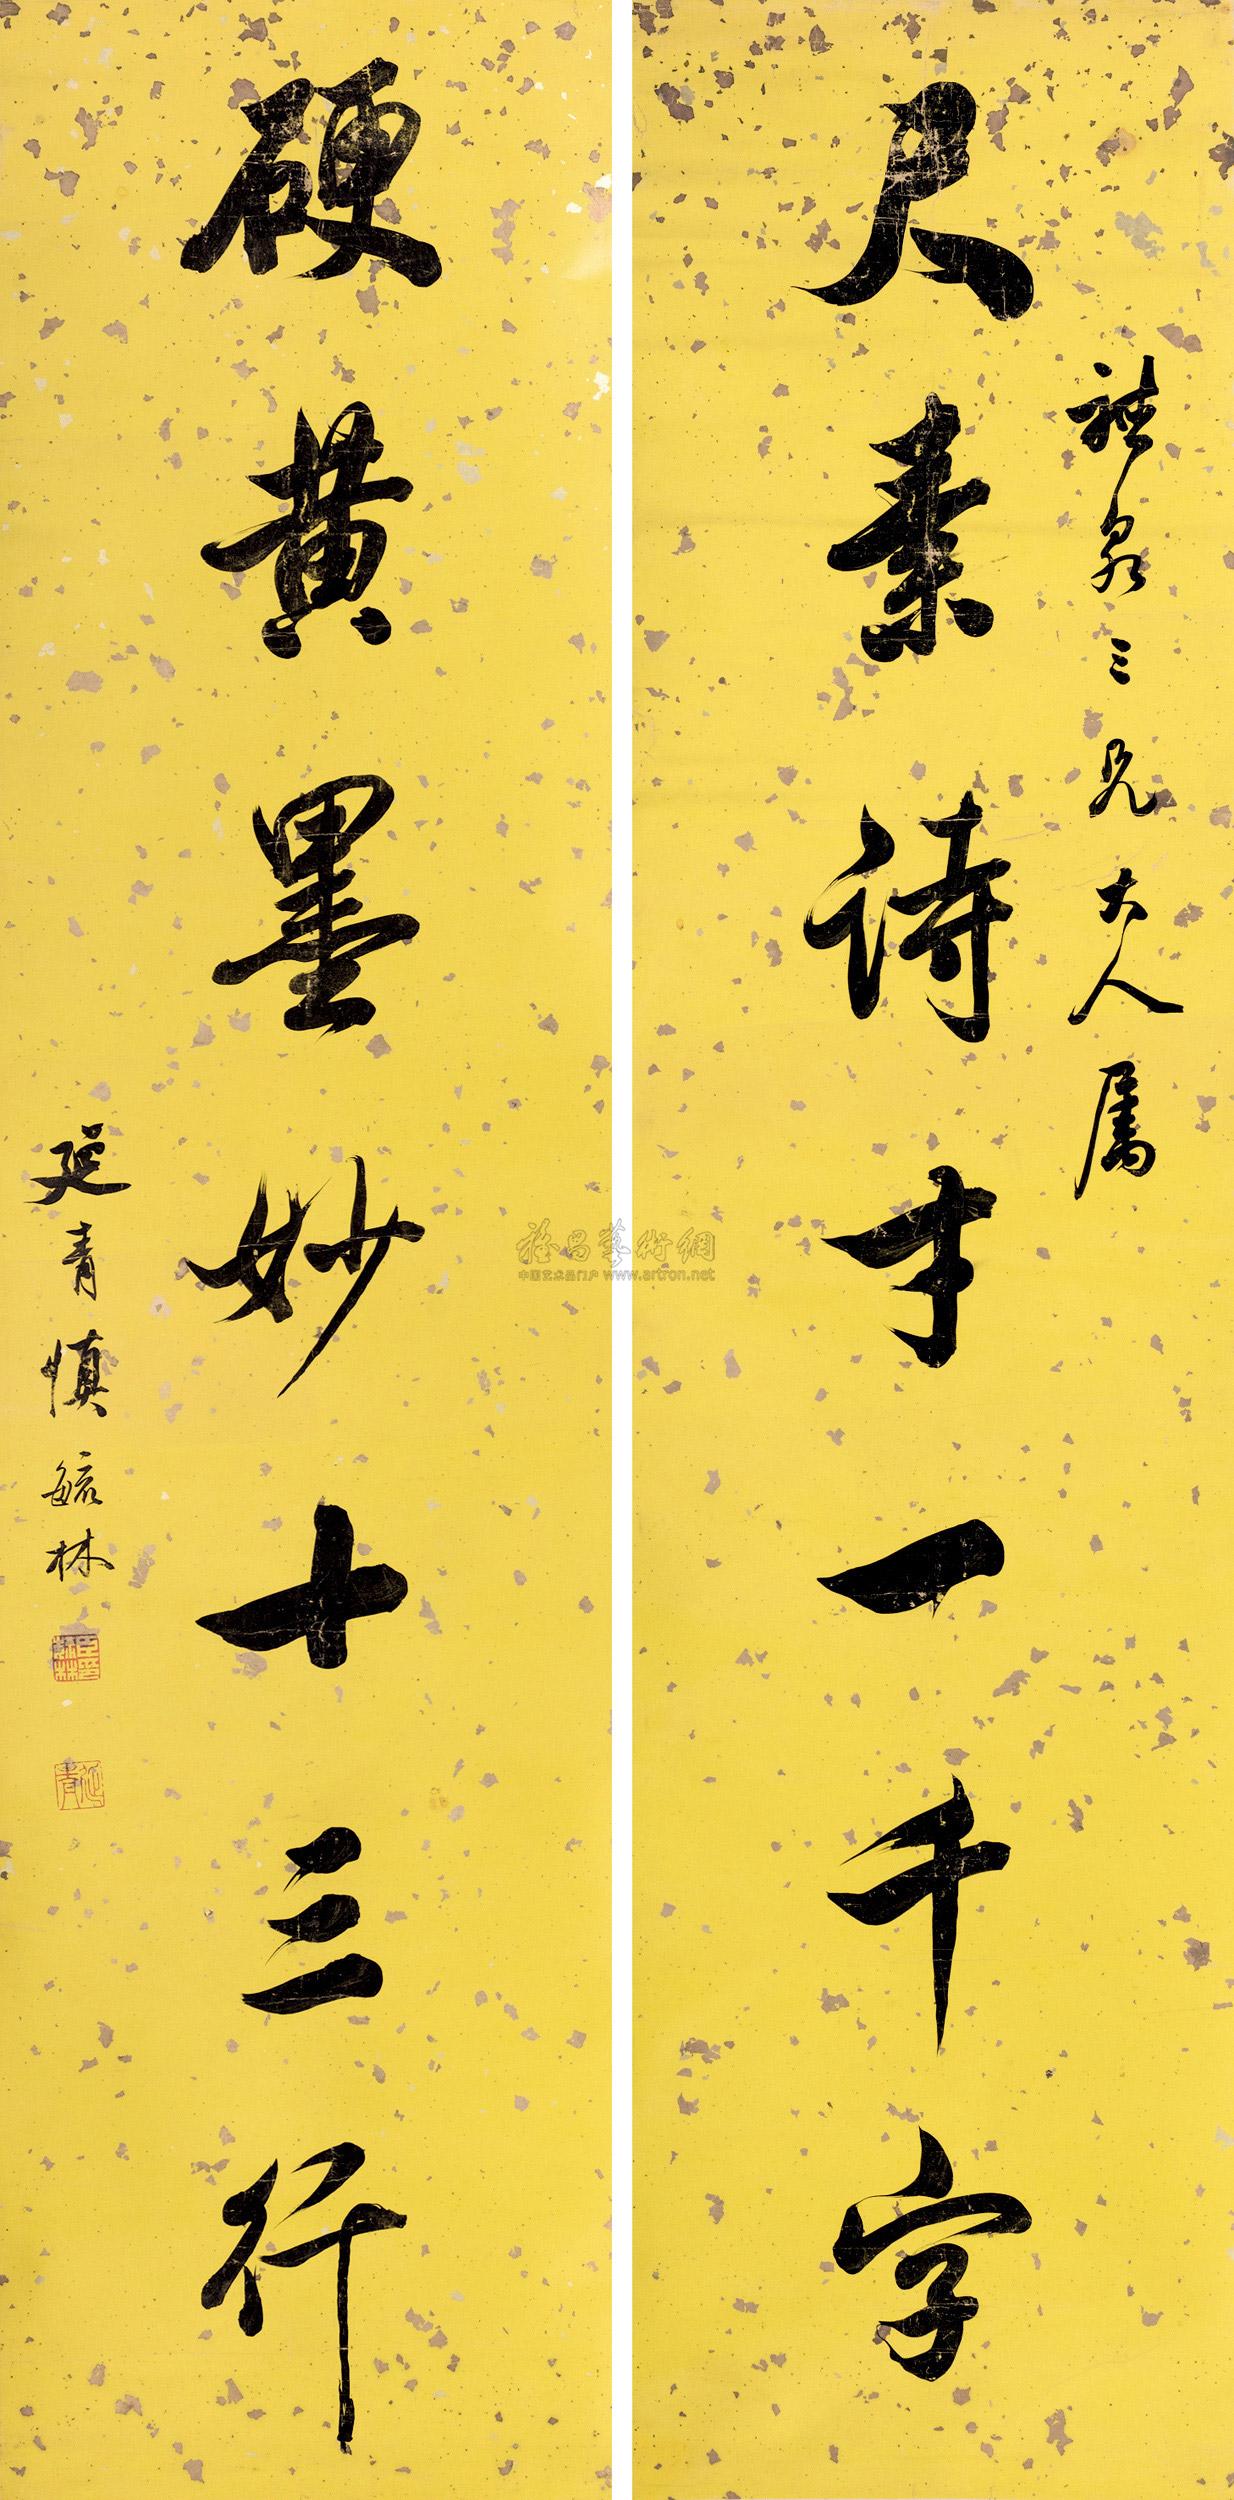 泉三兄大人属
尺素詩才一千字
硬黄墨妙十三行
延青慎毓林
延青
雅昌藝術網
中国艺术品门户 www.artron.net